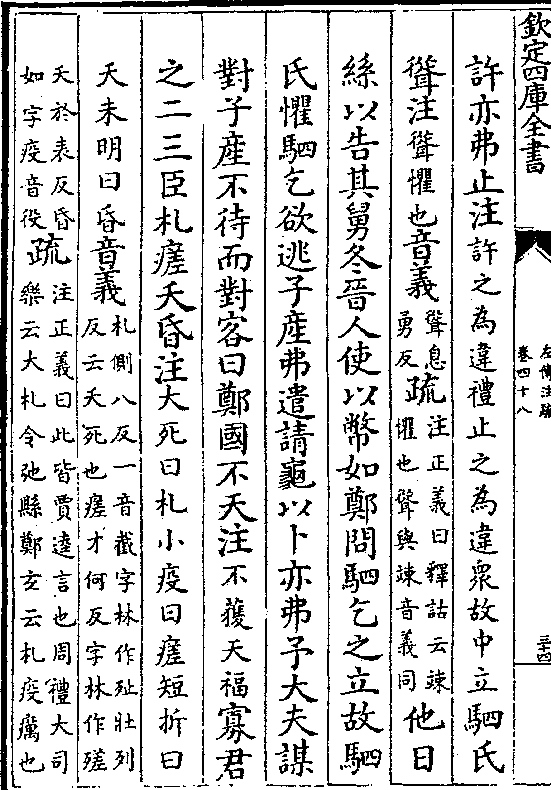 欽定四庫全書
左傳注疏
卷四十八
三十四
許亦弗止注許之為違禮止之為違衆故中立駟氏
聳注聳懼也音義聳息勇反疏注正義曰釋詁云竦懼也聳與竦音義同他日
絲以告其舅冬晉人使以幣如鄭問駟乞之立故駟
氏懼駟乞欲逃子産弗遣請龜以卜亦弗予大夫謀
對子産不待而對客曰鄭國不天注不獲天福寡君
之二三臣札瘥夭昏注大死曰札小疫曰瘥短折曰
天未明曰昏音義札側八反一音截字林作𣧞壯列反云夭死也瘥才何反字林作㽨
天於表反昏如字疫音役疏注正義曰此皆賈逵言也周禮大司樂云大札令弛縣鄭玄云札疫癘也